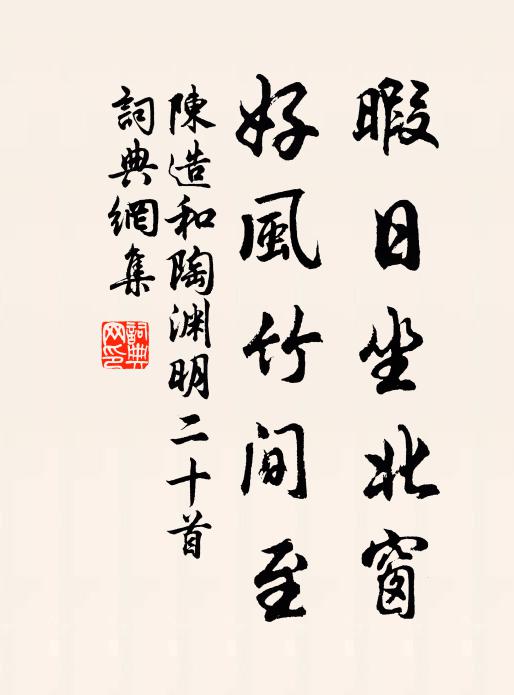 暇日坐北窗
好風竹间至
陳造和陶渊明二十首
詞典網集
詞典网印